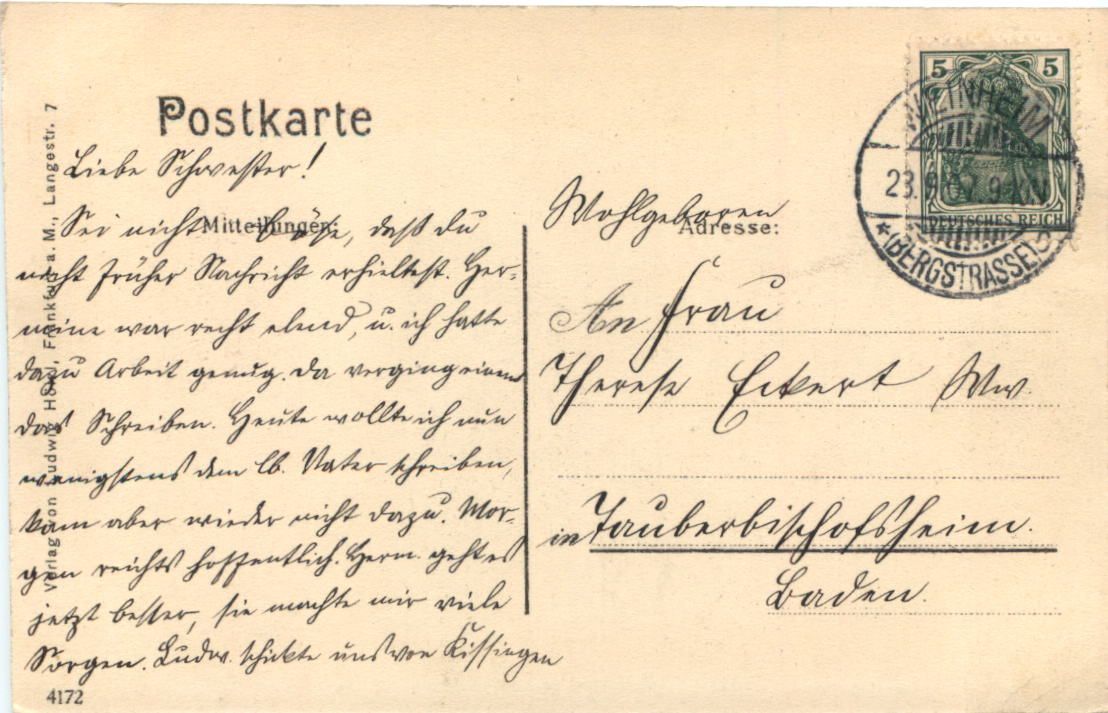 Postkarte
Mitteilungen.
Adresse:
Liebe Schwester!
Sei nicht böse, daß du
nicht früher Nachricht erhieltest. Her-
mine war recht elend, u. ich hatte
dazu Arbeit genug. Da verging einem
das Schreiben. Heute wollte ich nun
wenigstens dem lb. Vater schreiben,
kam aber wieder nicht dazu. Mor-
gen reichts hoffentlich. Herm. geht es
jetzt besser, sie machte mir viele
Sorgen. Ludw. schickte uns von Kissingen
Wohlgeboren
An Frau
Therese Eckert Ww.
in Tauberbischofsheim.
Baden.
5 5
DEUTSCHES REICH
WEINHEIM
23.9. 9-10 V
*(BERGSTRASSE)
Verlag von Ludwig Frankfurt a. M., Langestr. 7
4172